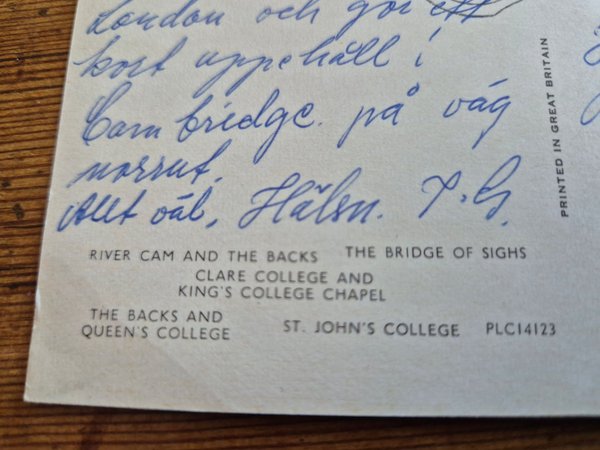 London och gör ett
kort uppehåll i
Cambridge. på väg
norrut.
Allt väl, Hälsn. T.G.
PRINTED IN GREAT BRITAIN
RIVER CAM AND THE BACKS THE BRIDGE OF SIGHS
CLARE COLLEGE AND
KING'S COLLEGE CHAPEL
THE BACKS AND
QUEEN'S COLLEGE ST. JOHN'S COLLEGE PLC14123